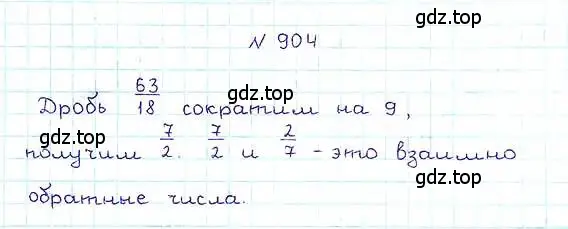 gdz.top
N 904
gdz.top
Дробь 63/18 сократим на 9,
gdz.top
gdz.top
получим 7/2. 7/2 и 2/7 - это взаимно
gdz.top
gdz.top
обратные числа.